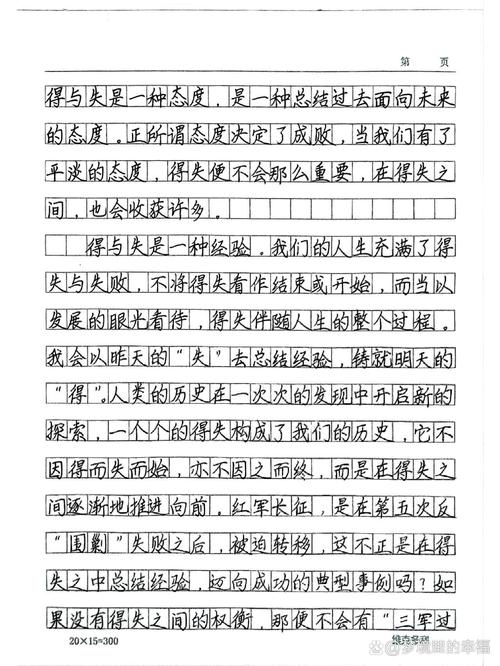 第 页
得与失是一种态度，是一种总结过去面向未来
的态度。正所谓态度决定了成败，当我们有了
平淡的态度，得失便不会那么重要，在得失之
间，也会收获许多。
得与失是一种经验。我们的人生充满了得
失与失败，不将得失看作结束或开始，而当以
发展的眼光看待，得失伴随人生的整个过程。
我会以昨天的“失”去总结经验，铸就明天的
“得”。人类的历史在一次次的发现中开启新的
探索，一个个的得失构成了我们的历史，它不
因得而失而始，亦不因之而终，而是在得失之
间逐渐地推进向前。红军长征，是在第五次反
“围剿”失败之后，被迫转移，这不正是在得
失之中总结经验，迈向成功的典型事例吗？如
果没有得失之间的权衡，那便不会有“三军过
20×15=300
维克多利